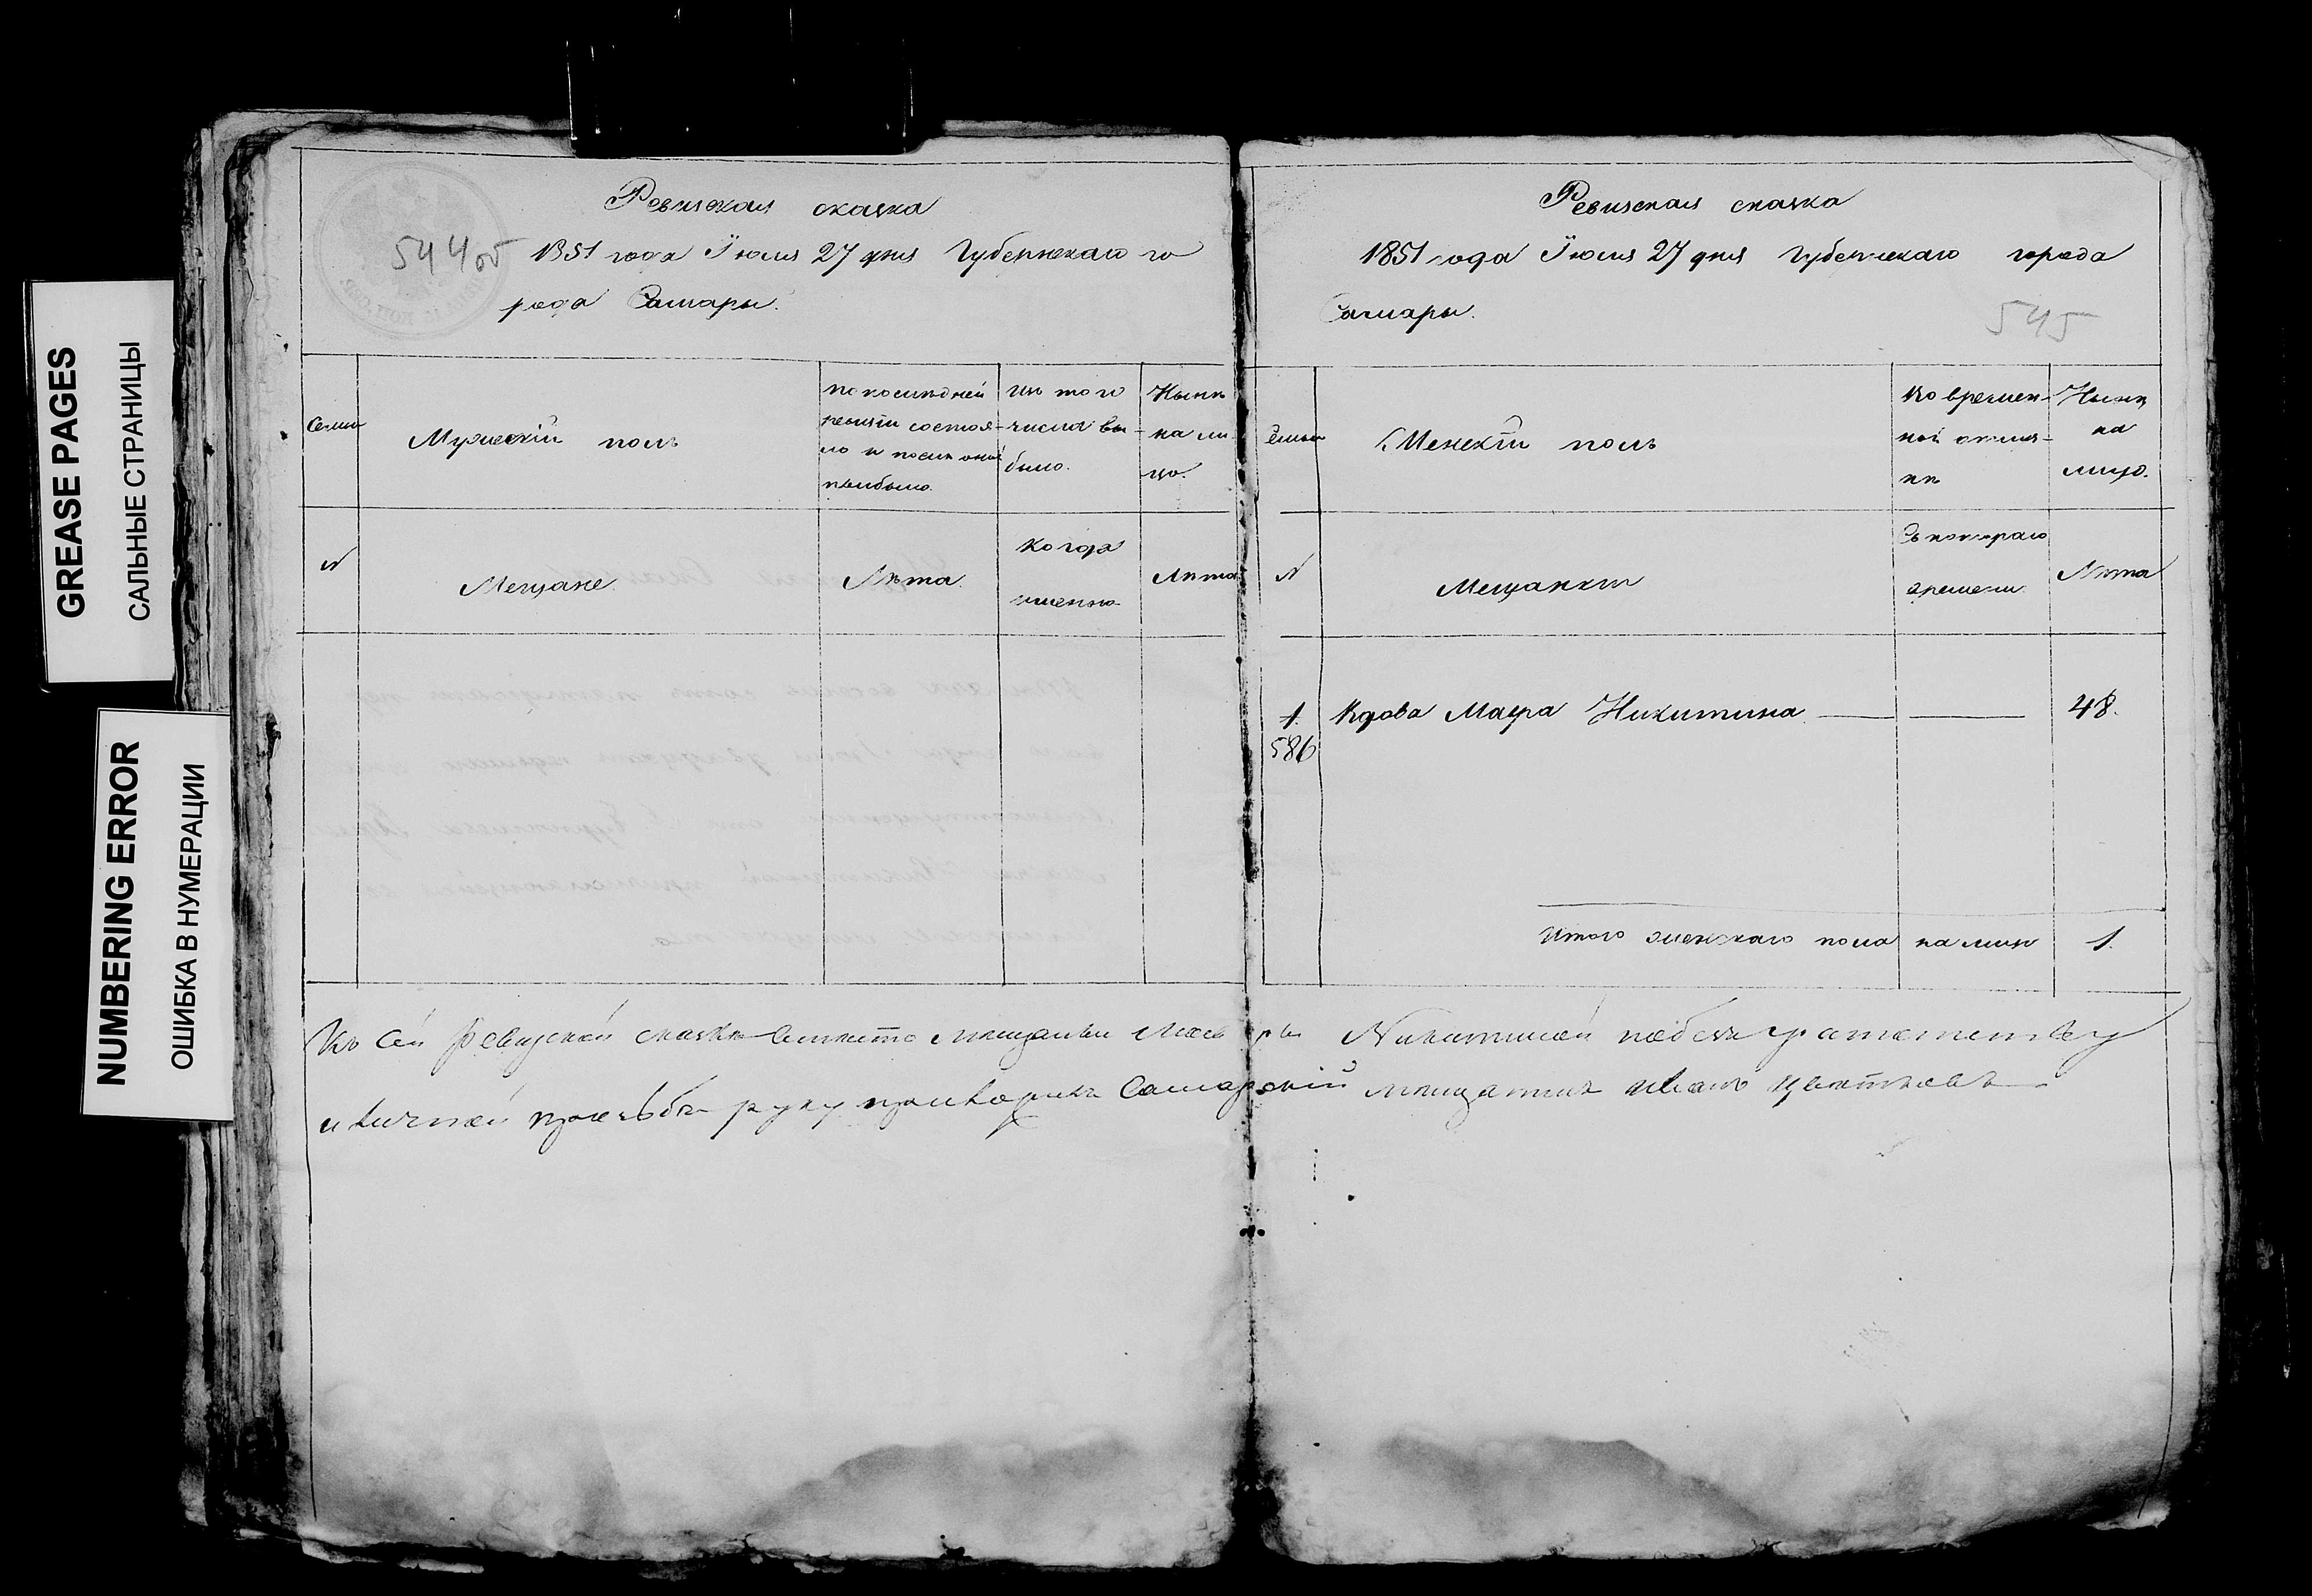 GREASE PAGES
САЛЬНЫЕ СТРАНИЦЫ
NUMBERING ERROR
ОШИБКА В НУМЕРАЦИИ
Ревизская сказка
544об 1851 года Іюля 27 дня Губернскаго го
рода Самары.
Семьи
Мужескій полъ
по последней
ревизіи состоя-
ло и после оной
прибыло.
изъ того
числа вы-
было.
Ныне
на ли
цо.
N
Мещане.
Лѣта.
Когда
именно
Лѣта
Ревизская сказка
1851 года Іюля 27 дня Губернскаго города
Самары.
545
Семьи
Женскій полъ
Во времен-
ной отлуч-
кѣ
Ныне
на
лицо.
N
Мещанки
Съ котораго
времени
Лѣта
1.
586
Вдова Мавра Никитина — — 48.
Итого женскаго пола на лицо 1.
Къ сей Ревизской сказкѣ вместо мещанки Мавры Никитиной по безграмотству
и личной прозьбѣ руку приложилъ Самарскій мещанинъ Иванъ Цветковъ